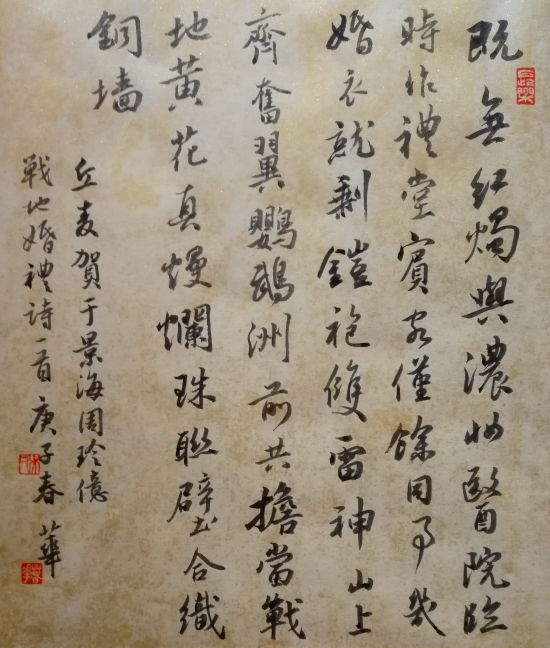 既無紅燭與濃妝醫院臨
時作禮堂賓客僅餘同事
婚衣就剩鎧袍雙雷神山上
齊奮翼鸚鵡洲前共擔當戰
地黃花真熳爛珠聯璧合織
銅墻
丘麦賀于景海周玲億
戰地婚禮詩一首庚子春華